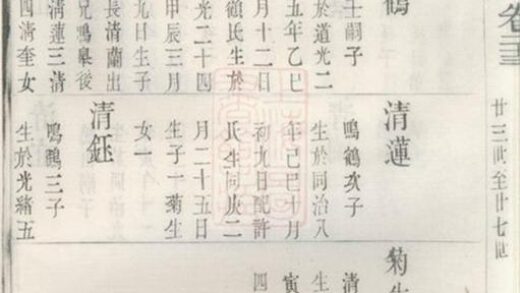 廿三世至廿七世
鶴
士嗣子
於道光二
五年乙巳
月十二日
顧氏生於
光二十四
甲辰三月
九日生子
長清蘭出
兄鳴皋後
清蓮三清
四清奎女
清蓮
鳴鶴次子
生於同治八
年己巳十月
初九日配許
氏生同庚二
月二十五日
生子一菊生
女一
清鈺
鳴鶴三子
生於光緒五
菊生
清
生
寅
四